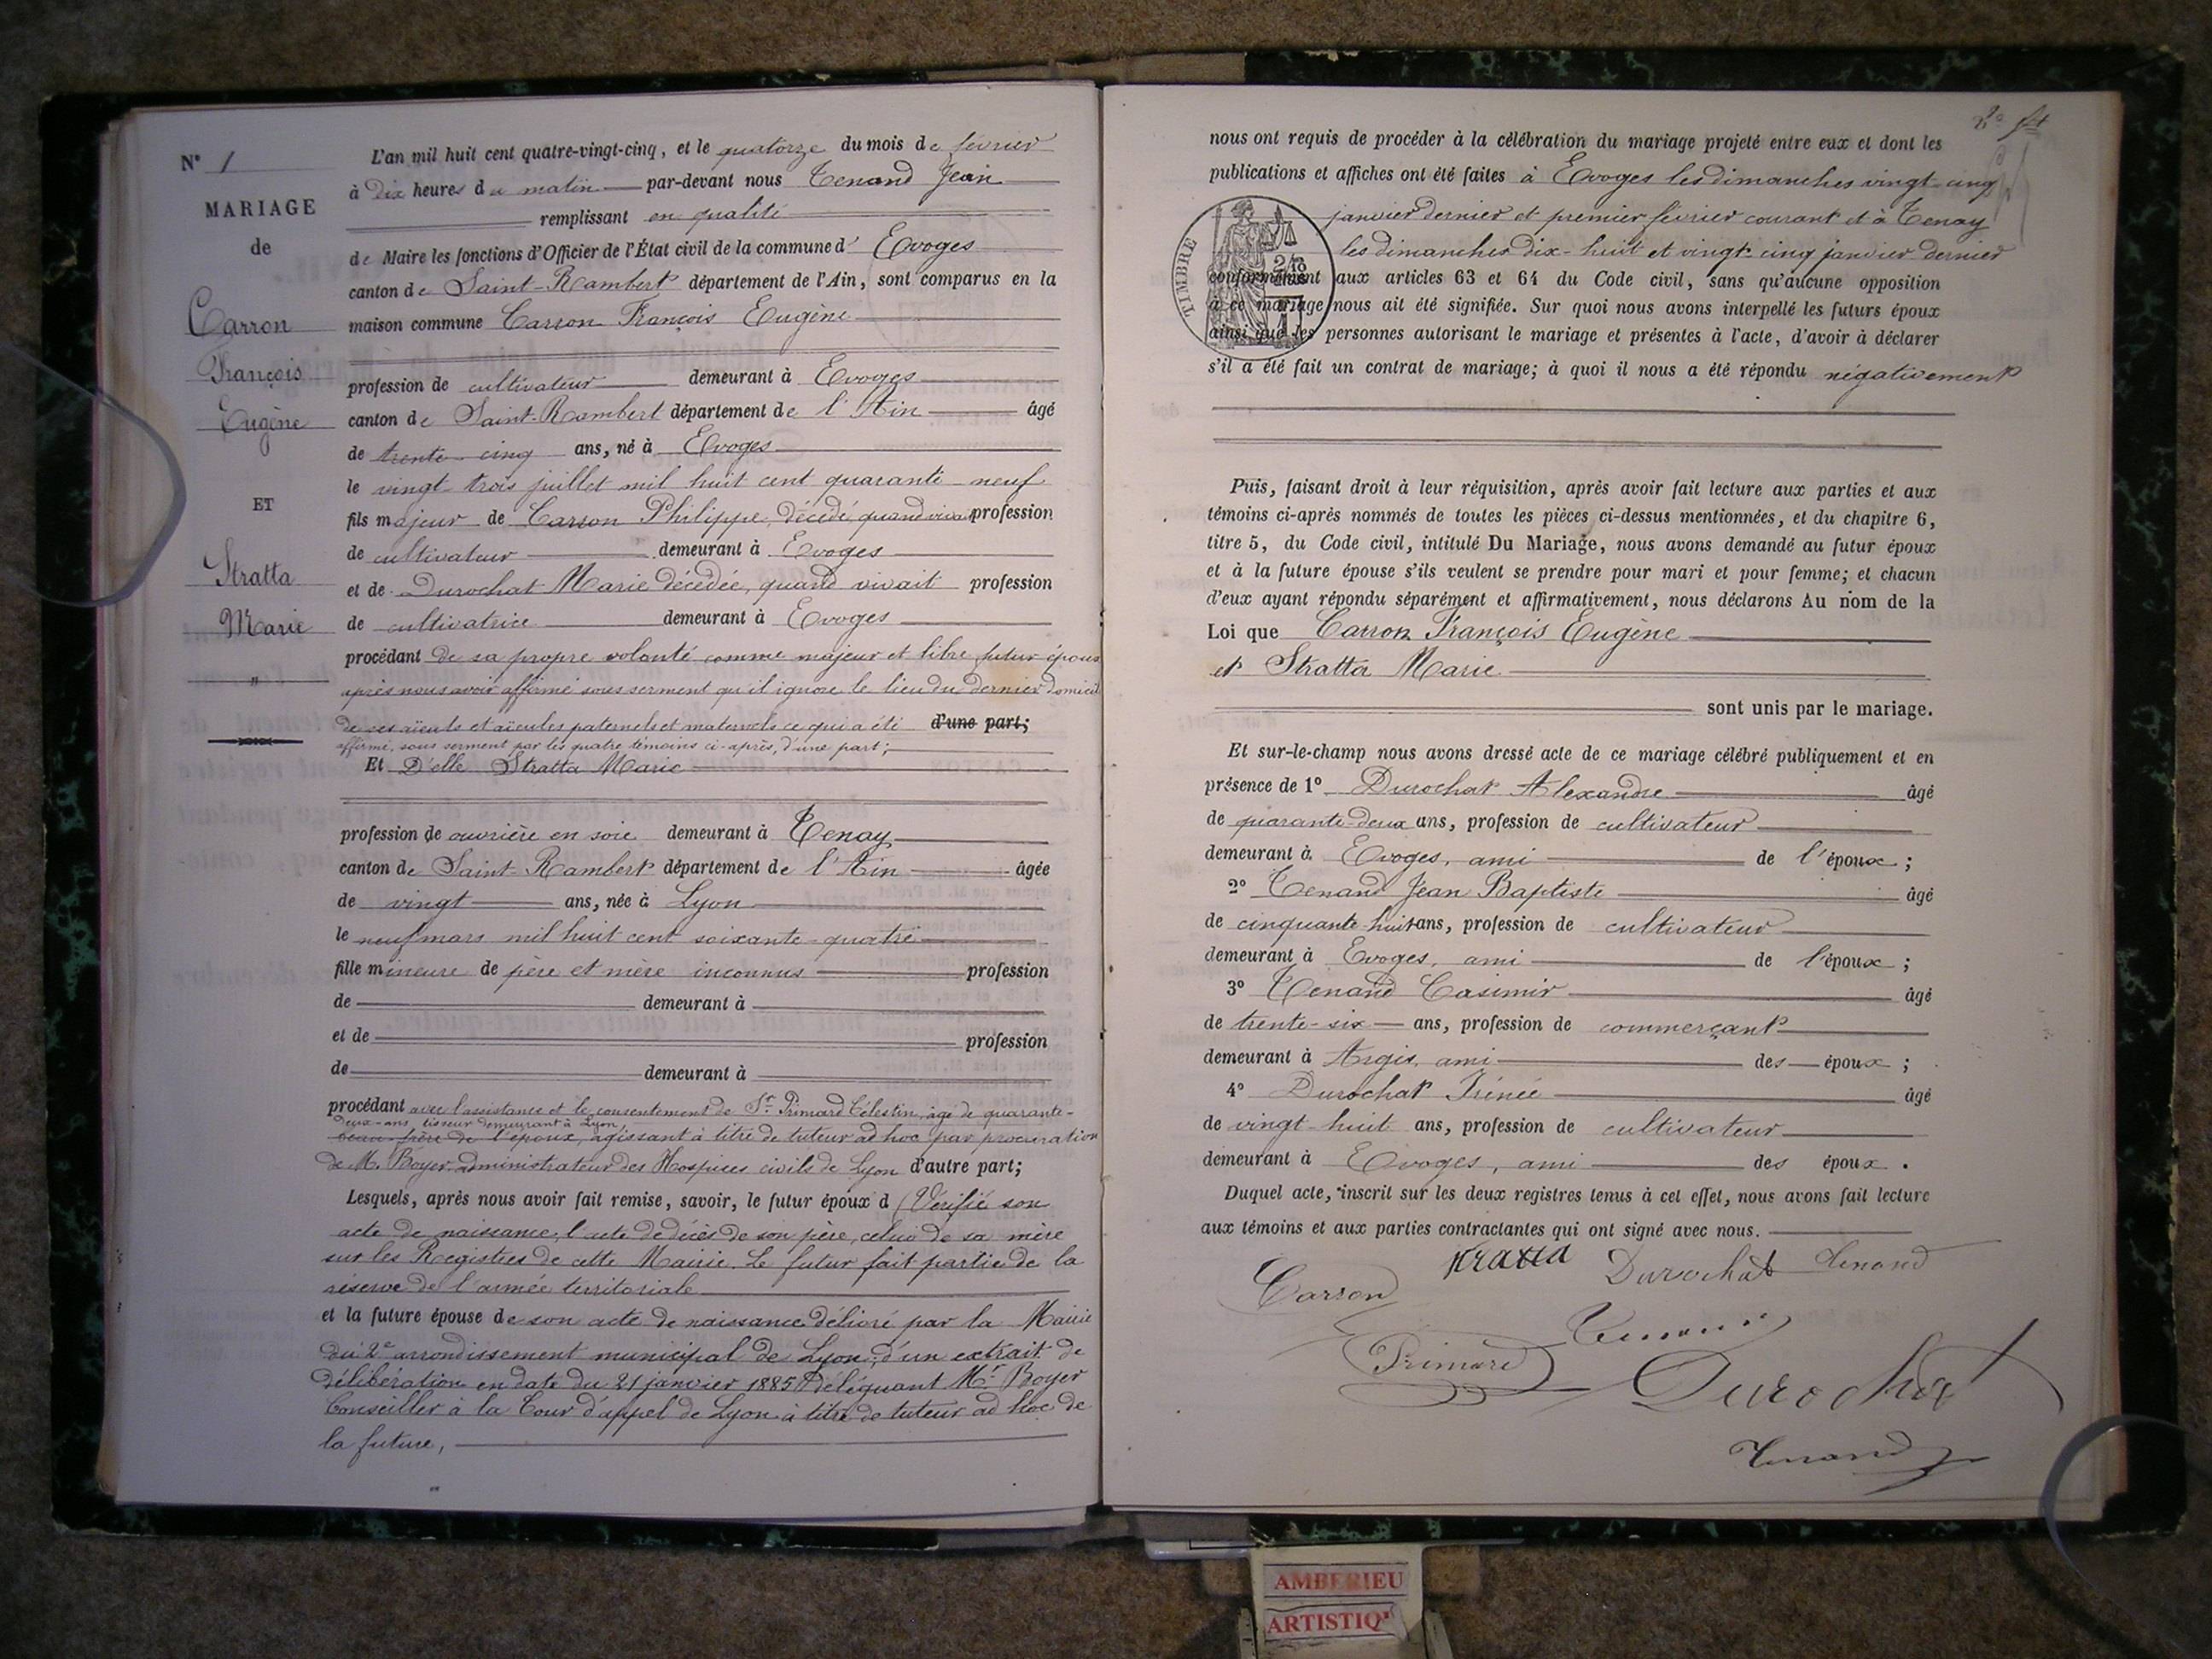 N° 1
MARIAGE
de
Carron
François
Eugène
ET
Stratta
Marie
"
L'an mil huit cent quatre-vingt-cinq, et le quatorze du mois de février
à dix heures du matin par-devant nous Tenand Jean
remplissant en qualité
de Maire les fonctions d'Officier de l'État civil de la commune d' Evoges
canton de Saint-Rambert département de l'Ain, sont comparus en la
maison commune Carron François Eugène
profession de cultivateur demeurant à Evoges
canton de Saint-Rambert département de l'Ain âgé
de trente-cinq ans, né à Evoges
le vingt-trois juillet mil huit cent quarante-neuf
fils majeur de Carron Philippe, décédé, quand vivait profession
de cultivateur demeurant à Evoges
et de Durochat Marie décédée, quand vivait profession
de cultivatrice demeurant à Evoges
procédant de sa propre volonté comme majeur et libre futur époux
après nous avoir affirmé sous serment qu'il ignore le lieu du dernier domicile
de ses aïeuls et aïeules paternels et maternels ce qui a été d'une part;
affirmé, sous serment par les quatre témoins ci-après, d'une part;
Et D'elle Stratta Marie
profession de ouvrière en soie demeurant à Tenay
canton de Saint-Rambert département de l'Ain âgée
de vingt ans, née à Lyon
le neuf mars mil huit cent soixante-quatre
fille mineure de père et mère inconnus profession
de demeurant à
et de profession
de demeurant à
procédant avec l'assistance et le consentement de Sr Primard Célestin, âgé de quarante-
deux-ans tisseur demeurant à Lyon,
beau-frère de l'époux, agissant à titre de tuteur ad hoc par procuration
de M. Boyer administrateur des Hospices civils de Lyon d'autre part;
Lesquels, après nous avoir fait remise, savoir, le futur époux d (Vérifié son
acte de naissance, l'acte de décès de son père, celui de sa mère
sur les Registres de cette Mairie. Le futur fait partie de la
réserve de l'armée territoriale
et la future épouse de son acte de naissance délivré par la Mairie
du 2e arrondissement municipal de Lyon; d'un extrait de
délibération en date du 21 janvier 1885 déléguant Mr Boyer
Conseiller à la Cour d'appel de Lyon à titre de tuteur ad hoc de
la future,
nous ont requis de procéder à la célébration du mariage projeté entre eux et dont les
publications et affiches ont été faites à Evoges les dimanches vingt-cinq
janvier dernier et premier février courant et à Tenay
les dimanches dix-huit et vingt-cinq janvier dernier
TIMBRE
conformément aux articles 63 et 64 du Code civil, sans qu'aucune opposition
à ce mariage nous ait été signifiée. Sur quoi nous avons interpellé les futurs époux
ainsi que les personnes autorisant le mariage et présentes à l'acte, d'avoir à déclarer
s'il a été fait un contrat de mariage; à quoi il nous a été répondu négativement
Puis, faisant droit à leur réquisition, après avoir fait lecture aux parties et aux
témoins ci-après nommés de toutes les pièces ci-dessus mentionnées, et du chapitre 6,
titre 5, du Code civil, intitulé Du Mariage, nous avons demandé au futur époux
et à la future épouse s'ils veulent se prendre pour mari et pour femme; et chacun
d'eux ayant répondu séparément et affirmativement, nous déclarons Au nom de la
Loi que Carron François Eugène
et Stratta Marie
sont unis par le mariage.
Et sur-le-champ nous avons dressé acte de ce mariage célébré publiquement et en
présence de 1° Durochat Alexandre âgé
de quarante-deux ans, profession de cultivateur
demeurant à Evoges, ami de l'époux;
2° Tenand Jean Baptiste âgé
de cinquante-huit ans, profession de cultivateur
demeurant à Evoges, ami de l'époux;
3° Tenand Casimir âgé
de trente-six ans, profession de commerçant
demeurant à Argis, ami des époux;
4° Durochat Irénée âgé
de vingt-huit ans, profession de cultivateur
demeurant à Evoges, ami des époux.
Duquel acte, inscrit sur les deux registres tenus à cet effet, nous avons fait lecture
aux témoins et aux parties contractantes qui ont signé avec nous.
Carron stratta Durochat Tenand
Primard Tenand
Durochat
Tenand
AMBERIEU
ARTISTIQ'